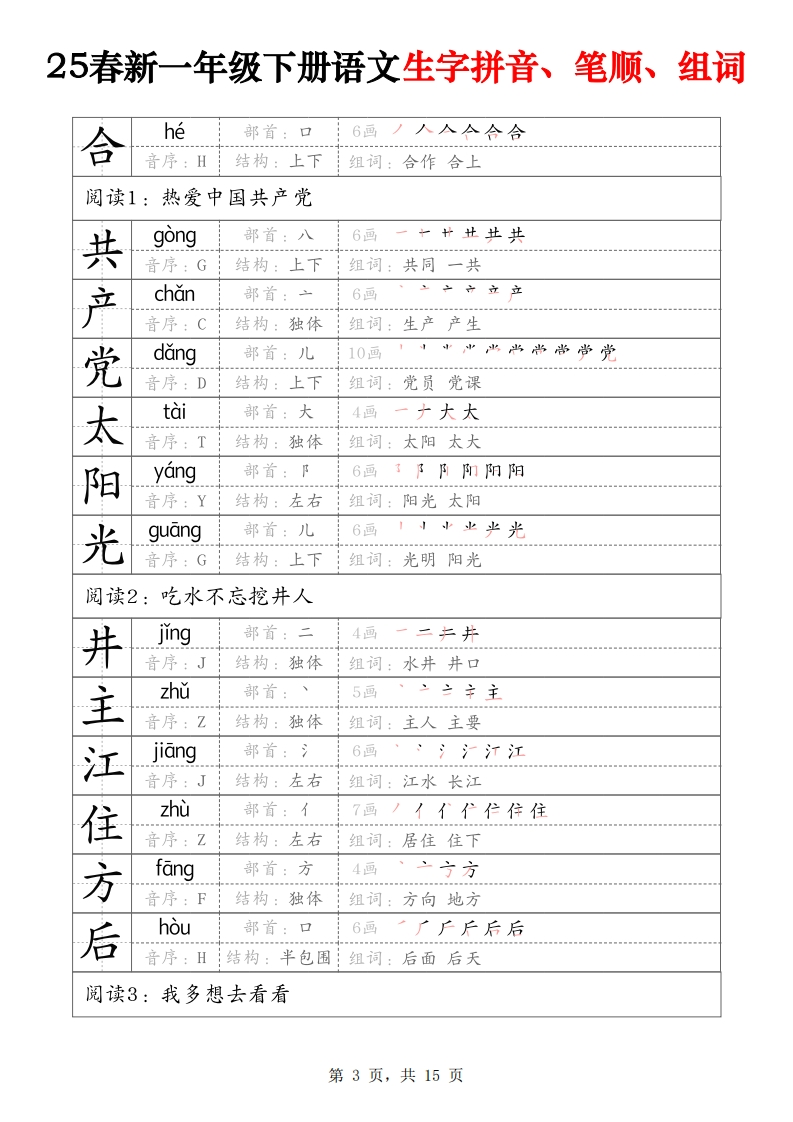 25春新一年级下册语文生字拼音、笔顺、组词
合 hé 部首：口 6画 丿 人 亼 合 合
音序：H 结构：上下 组词：合作 合上
阅读1：热爱中国共产党
共 gòng 部首：八 6画 共
音序：G 结构：上下 组词：共同 一共
产 chǎn 部首：亠 6画 产
音序：C 结构：独体 组词：生产 产生
党 dǎng 部首：儿 10画 党
音序：D 结构：上下 组词：党员 党课
太 tài 部首：大 4画 一 ナ 大 太
音序：T 结构：独体 组词：太阳 太大
阳 yáng 部首：阝 6画 阳
音序：Y 结构：左右 组词：阳光 太阳
光 guāng 部首：儿 6画 光
音序：G 结构：上下 组词：光明 阳光
阅读2：吃水不忘挖井人
井 jǐng 部首：二 4画 一 二 井
音序：J 结构：独体 组词：水井 井口
主 zhǔ 部首：丶 5画 丶 亠 主
音序：Z 结构：独体 组词：主人 主要
江 jiāng 部首：氵 6画 江
音序：J 结构：左右 组词：江水 长江
住 zhù 部首：亻 7画 丿 亻 住
音序：Z 结构：左右 组词：居住 住下
方 fāng 部首：方 4画 丶 亠 方
音序：F 结构：独体 组词：方向 地方
后 hòu 部首：口 6画 后
音序：H 结构：半包围 组词：后面 后天
阅读3：我多想去看看
第 3 页，共 15 页